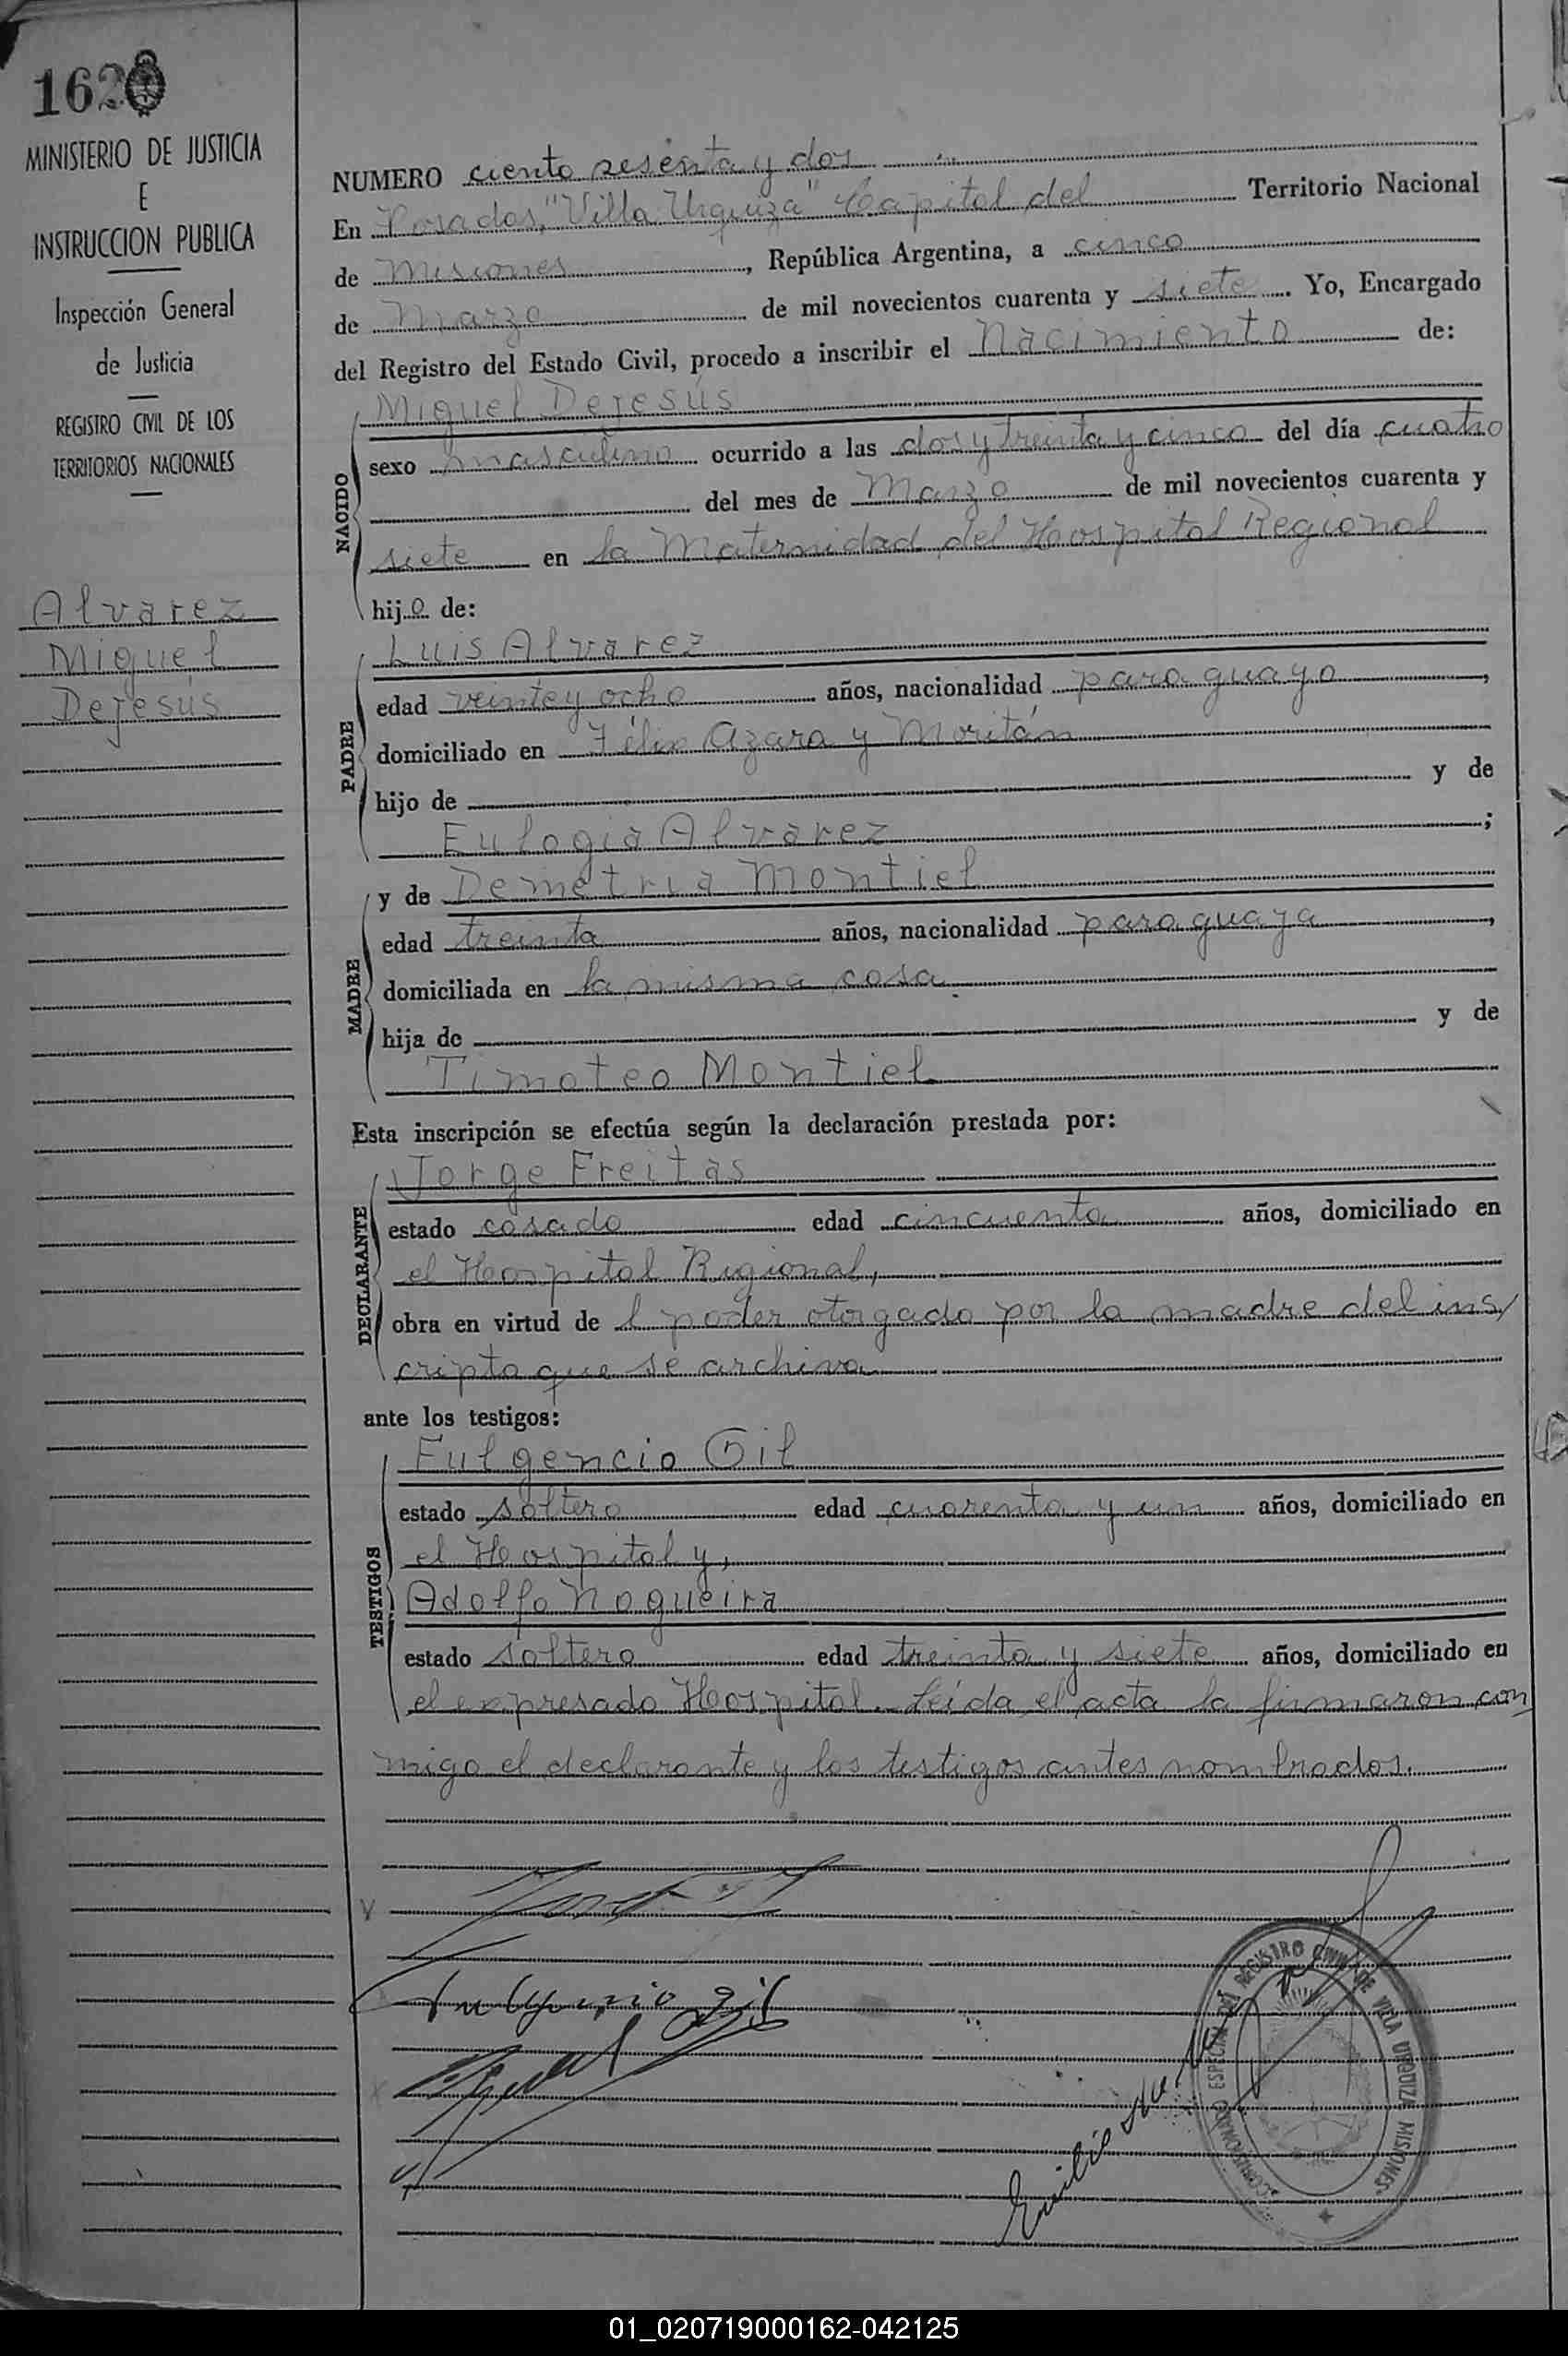 162
MINISTERIO DE JUSTICIA
E
INSTRUCCION PUBLICA
Inspección General
de Justicia
REGISTRO CIVIL DE LOS
TERRITORIOS NACIONALES
Alvarez
Miguel
Dejesús
NUMERO ciento sesenta y dos
En Posadas, "Villa Urquiza" Capital del Territorio Nacional
de Misiones, República Argentina, a cinco
de Marzo de mil novecientos cuarenta y siete. Yo, Encargado
del Registro del Estado Civil, procedo a inscribir el Nacimiento de:
NACIDO
Miguel Dejesús
sexo masculino ocurrido a las dos y treinta y cinco del día cuatro
del mes de Marzo de mil novecientos cuarenta y
siete en la Maternidad del Hospital Regional
hijo de:
PADRE
Luis Alvarez
edad veinte y ocho años, nacionalidad paraguayo,
domiciliado en Félix Azara y Moritán
hijo de y de
Eulogia Alvarez;
MADRE
y de Demetria Montiel
edad treinta años, nacionalidad paraguaya,
domiciliada en la misma casa.
hija de y de
Timoteo Montiel
Esta inscripción se efectúa según la declaración prestada por:
DECLARANTE
Jorge Freitas
estado casado edad cincuenta años, domiciliado en
el Hospital Regional,
obra en virtud de l poder otorgado por la madre del ins/
cripto que se archiva
ante los testigos:
TESTIGOS
Fulgencio Gil
estado soltero edad cuarenta y un años, domiciliado en
el Hospital y,
Adolfo Nogueira
estado soltero edad treinta y siete años, domiciliado en
el expresado Hospital. Leída el acta la firmaron con
migo el declarante y los testigos antes nombrados.
Fulgencio Gil
Emilio
REGISTRO CIVIL DE VILLA URQUIZA MISIONES
01_020719000162-042125